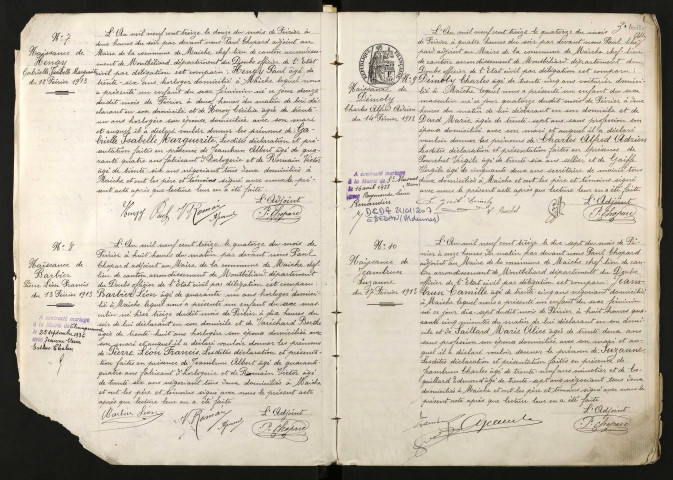 N° 7
Naissance de
Henry
Gabrielle Isabelle Marguerite
du 11 Février 1913
L'An mil neuf cent treize le douze du mois de Février à
deux heures du soir par devant nous Paul Chopard adjoint au
Maire de la commune de Maîche chef-lieu de canton arrondissement
de Montbéliard département du Doubs officier de l'Etat
civil par délégation est comparu Henry Paul âgé de
trente-six ans horloger domicilié à Maîche lequel nous
a présenté un enfant du sexe féminin né le onze
dudit mois de Février à deux heures du matin de lui déclarant
en son domicile et de
un ans horlogère son épouse domiciliée avec son mari
et auquel il a déclaré vouloir donner les prénoms de Gabrielle
Isabelle Marguerite. Lesdites déclaration et présentation
faites en présence de Jeambrun Albert âgé de quarante
quatre ans fabricant d'horlogerie et de Romain Victor
âgé de trente six ans négociant tous deux domiciliés à
Maîche et ont les père et témoins signé avec nous le présent
acte après que lecture leur en a été faite.
Henry Paul V Romain
L'Adjoint
P. Chopard
N° 8
Naissance de
Barbier
Pierre Léon Francis
du 13 Février 1913
A contracté mariage
à la Mairie de
le 28 septembre 1936
avec Jeanne Marie
L'An mil neuf cent treize le quatorze du mois
de Février à huit heures du matin par devant nous Paul
Chopard adjoint au Maire de la commune de Maîche chef-lieu
de canton arrondissement de Montbéliard département
du Doubs officier de l'Etat civil par délégation est comparu
Barbier Léon âgé de quarante un ans horloger domicilié
à Maîche lequel nous a présenté un enfant du sexe masculin
né hier treize dudit mois de Février à six heures du
soir de lui déclarant en son domicile et de Maréchal Berthe
âgée de trente huit ans horlogère son épouse domiciliée avec
son mari et auquel il a déclaré vouloir donner les prénoms
de Pierre Léon Francis. Lesdites déclaration et présentation
faites en présence de Jeambrun Albert âgé de quarante
quatre ans fabricant d'horlogerie et de Romain Victor âgé
de trente six ans négociant tous deux domiciliés à Maîche
et ont les père et témoins signé avec nous le présent acte
après que lecture leur en a été faite
Barbier Léon
V Romain
L'Adjoint
P. Chopard
N° 9
Naissance de
Démoly
Charles Alfred Adrien
du 14 Février 1913
A contracté mariage
à la Mairie de St
le 16 avril 1938
avec Raymonde
DCD le 21/01/2007
L'An mil neuf cent treize le quatorze du mois
de Février à quatre heures du soir par devant nous Paul Chopard
adjoint au Maire de la commune de Maîche chef-lieu
de canton arrondissement de Montbéliard département du
Doubs officier de l'Etat civil par délégation est comparu
Démoly Charles âgé de trente ans voiturier domicilié
à Maîche lequel nous a présenté un enfant du sexe
masculin né le quatorze dudit mois de Février à deux heures
du matin de lui déclarant en son domicile et de
Marie âgée de trente sept ans sans profession son
épouse domiciliée avec son mari et auquel il a déclaré
vouloir donner les prénoms de Charles Alfred Adrien
Lesdites déclaration et présentation faites en présence de
Virgile âgé de trente six ans sellier et de
Virgile âgé de cinquante deux ans secrétaire de mairie tous
deux domiciliés à Maîche et ont les père et témoins signé
avec nous le présent acte après que lecture leur en a été faite.
L'Adjoint
P. Chopard
N° 10
Naissance de
Jeambrun
Suzanne
du 17 Février 1913
L'An mil neuf cent treize le dix sept du mois de Février
à onze heures du matin par devant nous Paul Chopard
adjoint au Maire de la commune de Maîche chef-lieu de canton
arrondissement de Montbéliard département du Doubs
officier de l'Etat civil par délégation est comparu Jeambrun
Camille âgé de trente cinq ans domicilié
à Maîche lequel nous a présenté un enfant du sexe féminin
né ce jour dix-sept dudit mois de Février à huit heures quarante
cinq minutes du matin de lui déclarant en son domicile
et de Taillard Marie Alice âgée de trente deux ans
sans profession son épouse domiciliée avec son mari et auquel
il a déclaré vouloir donner le prénom de Suzanne.
Lesdites déclaration et présentation faites en présence de
Jeambrun Charles âgé de trente neuf ans et de
Edouard âgé de trente sept ans négociant tous deux
domiciliés à Maîche et ont les père et témoins signé avec nous le
présent acte après que lecture leur en a été faite
L'Adjoint
P. Chopard